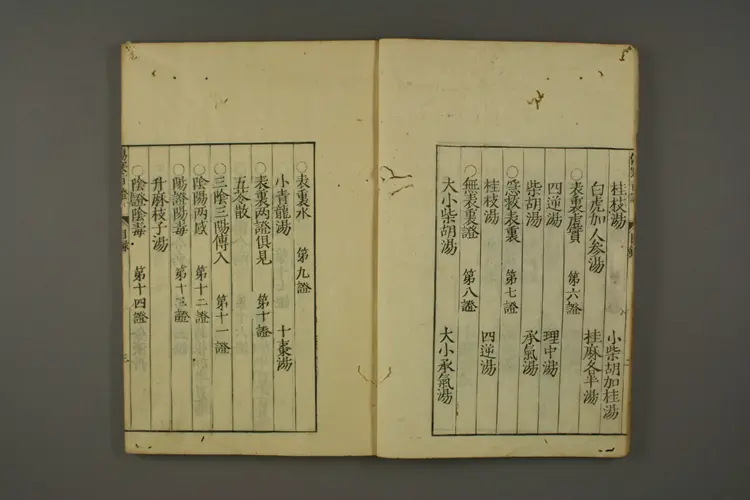 桂枝湯 小柴胡加桂湯
白虎加人參湯 桂麻各半湯
○表裏虛實 第六證
四逆湯 理中湯
柴胡湯 承氣湯
○急救表裏 第七證
桂枝湯 四逆湯
○無表裏證 第八證
大小柴胡湯 大小承氣湯
○表裏水 第九證
小青龍湯 十棗湯
○表裏兩證俱見 第十證
五苓散
○三陰三陽傳入 第十一證
○陰陽兩感 第十二證
○陽證陽毒 第十三證
升麻枝子湯
○陰證陰毒 第十四證
目錄
三